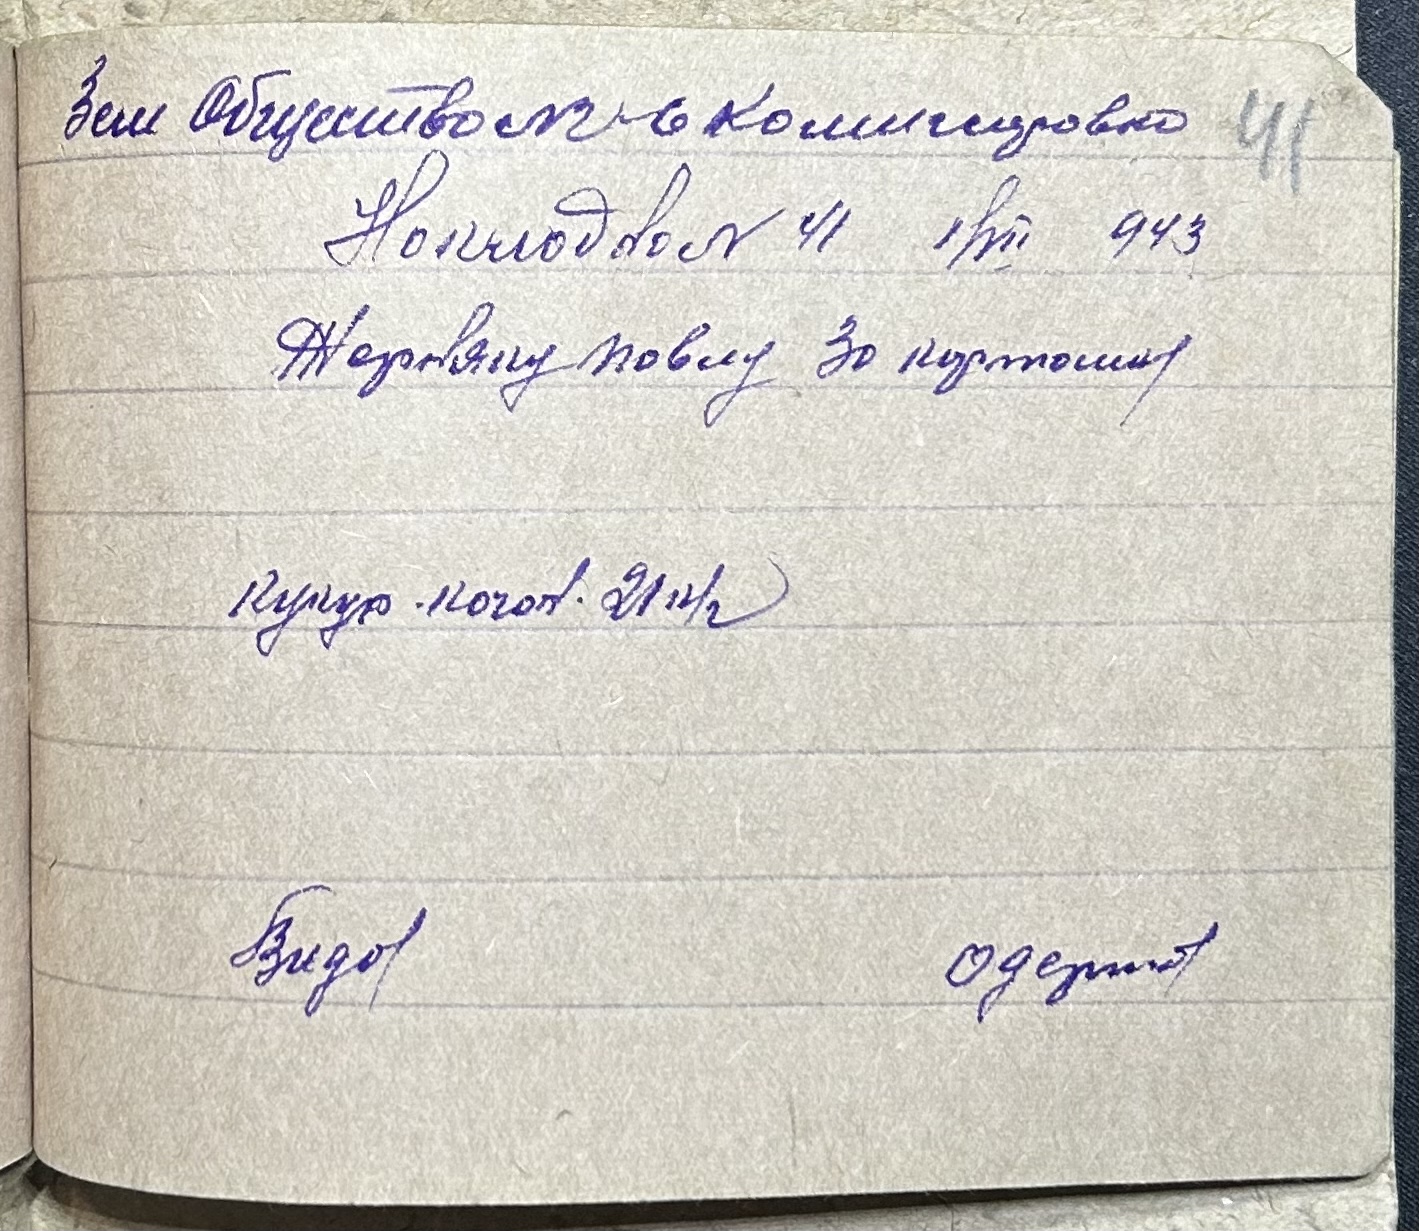 Зем Общество № 6 Комиссаровка 41
Накладная № 41 1/VII 943
Жертвяку Павлу За картошку
кукур. кочан. 21 к/г
Видав одержав